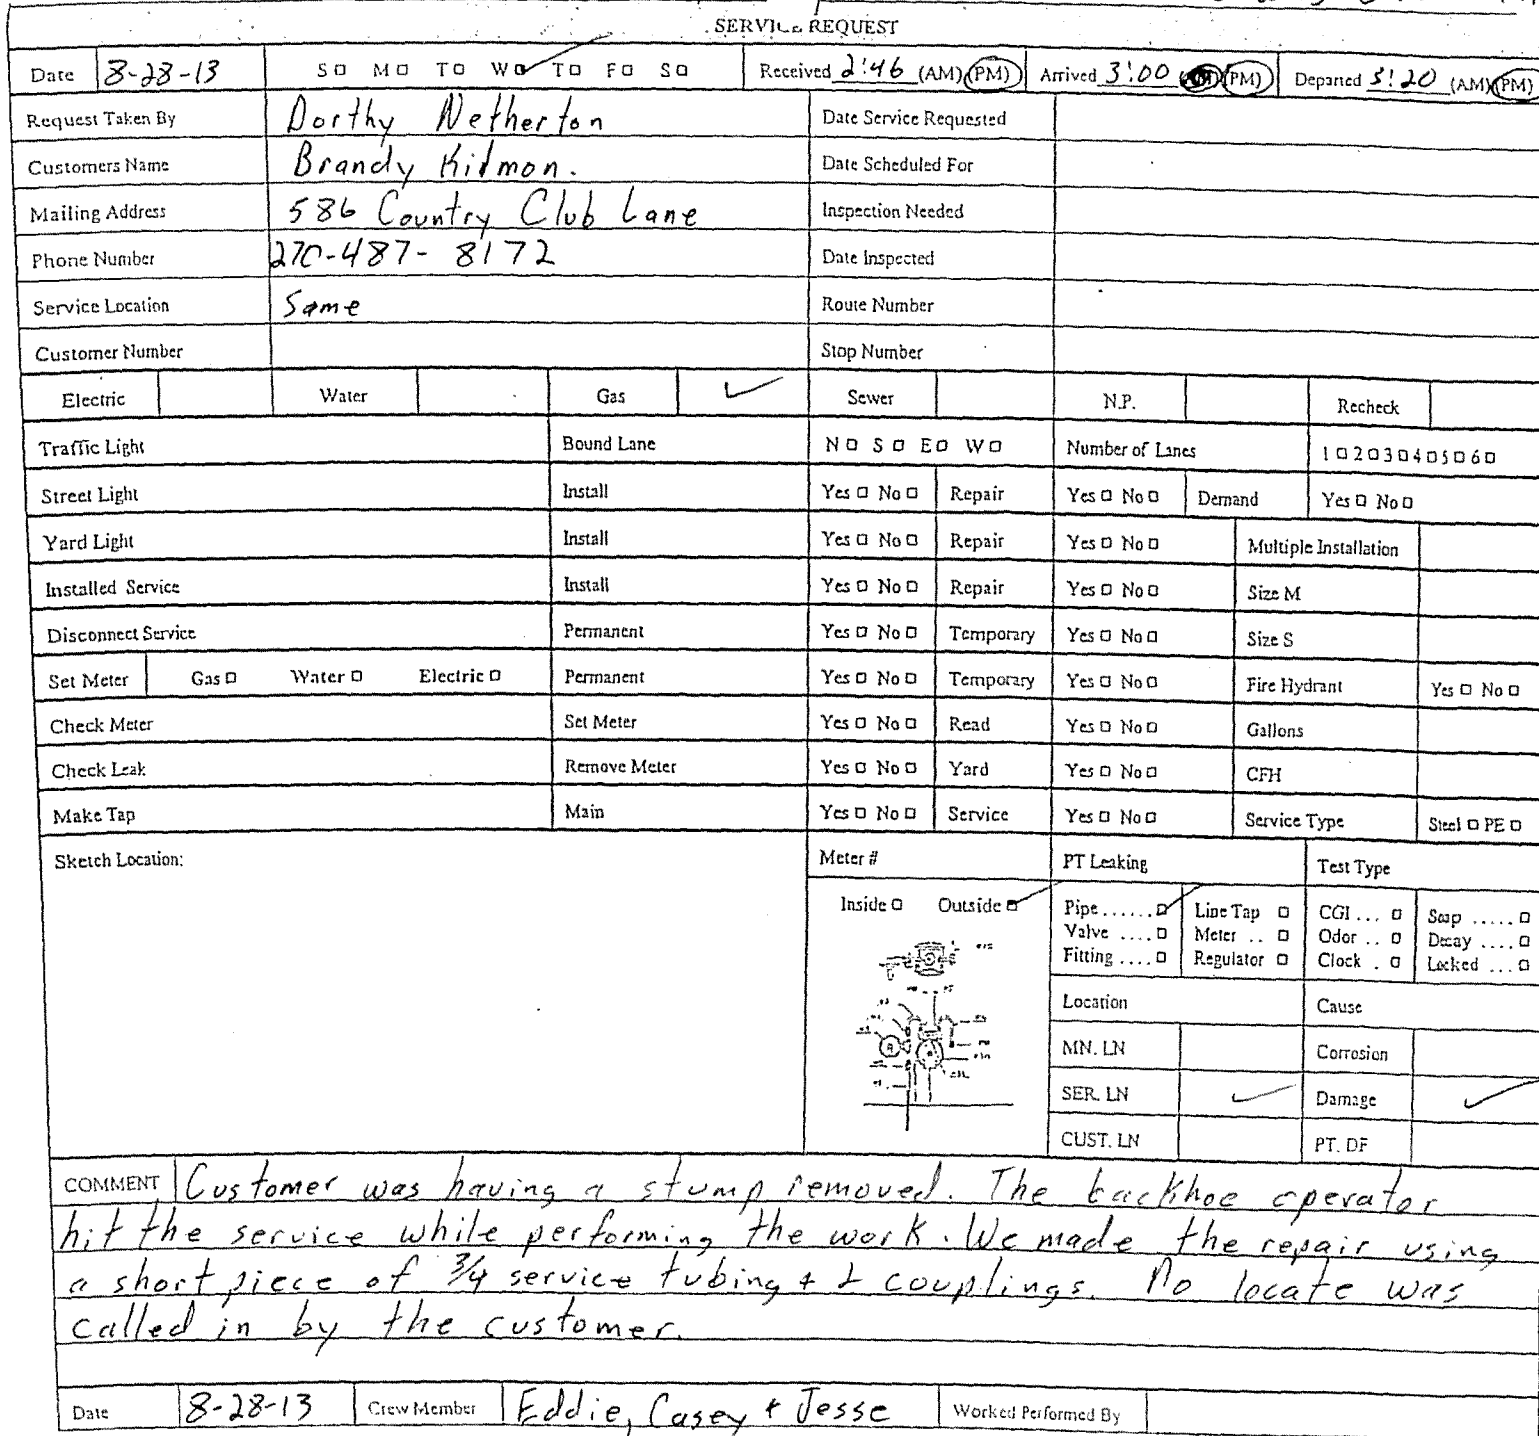 SERVICE REQUEST
Date 8-28-13 S M T W T F S Received 2:46 (AM) (PM) Arrived 3:00 (PM) Departed 3:20 (AM) (PM)
Request Taken By Dorthy Netherton Date Service Requested
Customers Name Brandy Kidmon. Date Scheduled For
Mailing Address 586 Country Club Lane Inspection Needed
Phone Number 270-487-8172 Date Inspected
Service Location Same Route Number
Customer Number Stop Number
Electric Water Gas ✓ Sewer N.P. Recheck
Traffic Light Bound Lane N S E W Number of Lanes 1 2 3 4 5 6
Street Light Install Yes No Repair Yes No Demand Yes No
Yard Light Install Yes No Repair Yes No Multiple Installation
Installed Service Install Yes No Repair Yes No Size M
Disconnect Service Permanent Yes No Temporary Yes No Size S
Set Meter Gas Water Electric Permanent Yes No Temporary Yes No Fire Hydrant Yes No
Check Meter Set Meter Yes No Read Yes No Gallons
Check Leak Remove Meter Yes No Yard Yes No CFH
Make Tap Main Yes No Service Yes No Service Type Steel PE
Sketch Location: Meter # PT Leaking Test Type
Inside Outside Pipe ...... Line Tap CGI ... Soap .....
Valve .... Meter .. Odor .. Decay ....
Fitting .... Regulator Clock . Locked ...
Location Cause
MN. LN Corrosion
SER. LN ✓ Damage ✓
CUST. LN PT. DF
COMMENT Customer was having a stump removed. The backhoe operator
hit the service while performing the work. We made the repair using
a short piece of 3/4 service tubing + 2 couplings. No locate was
called in by the customer.
Date 8-28-13 Crew Member Eddie, Casey + Jesse Worked Performed By